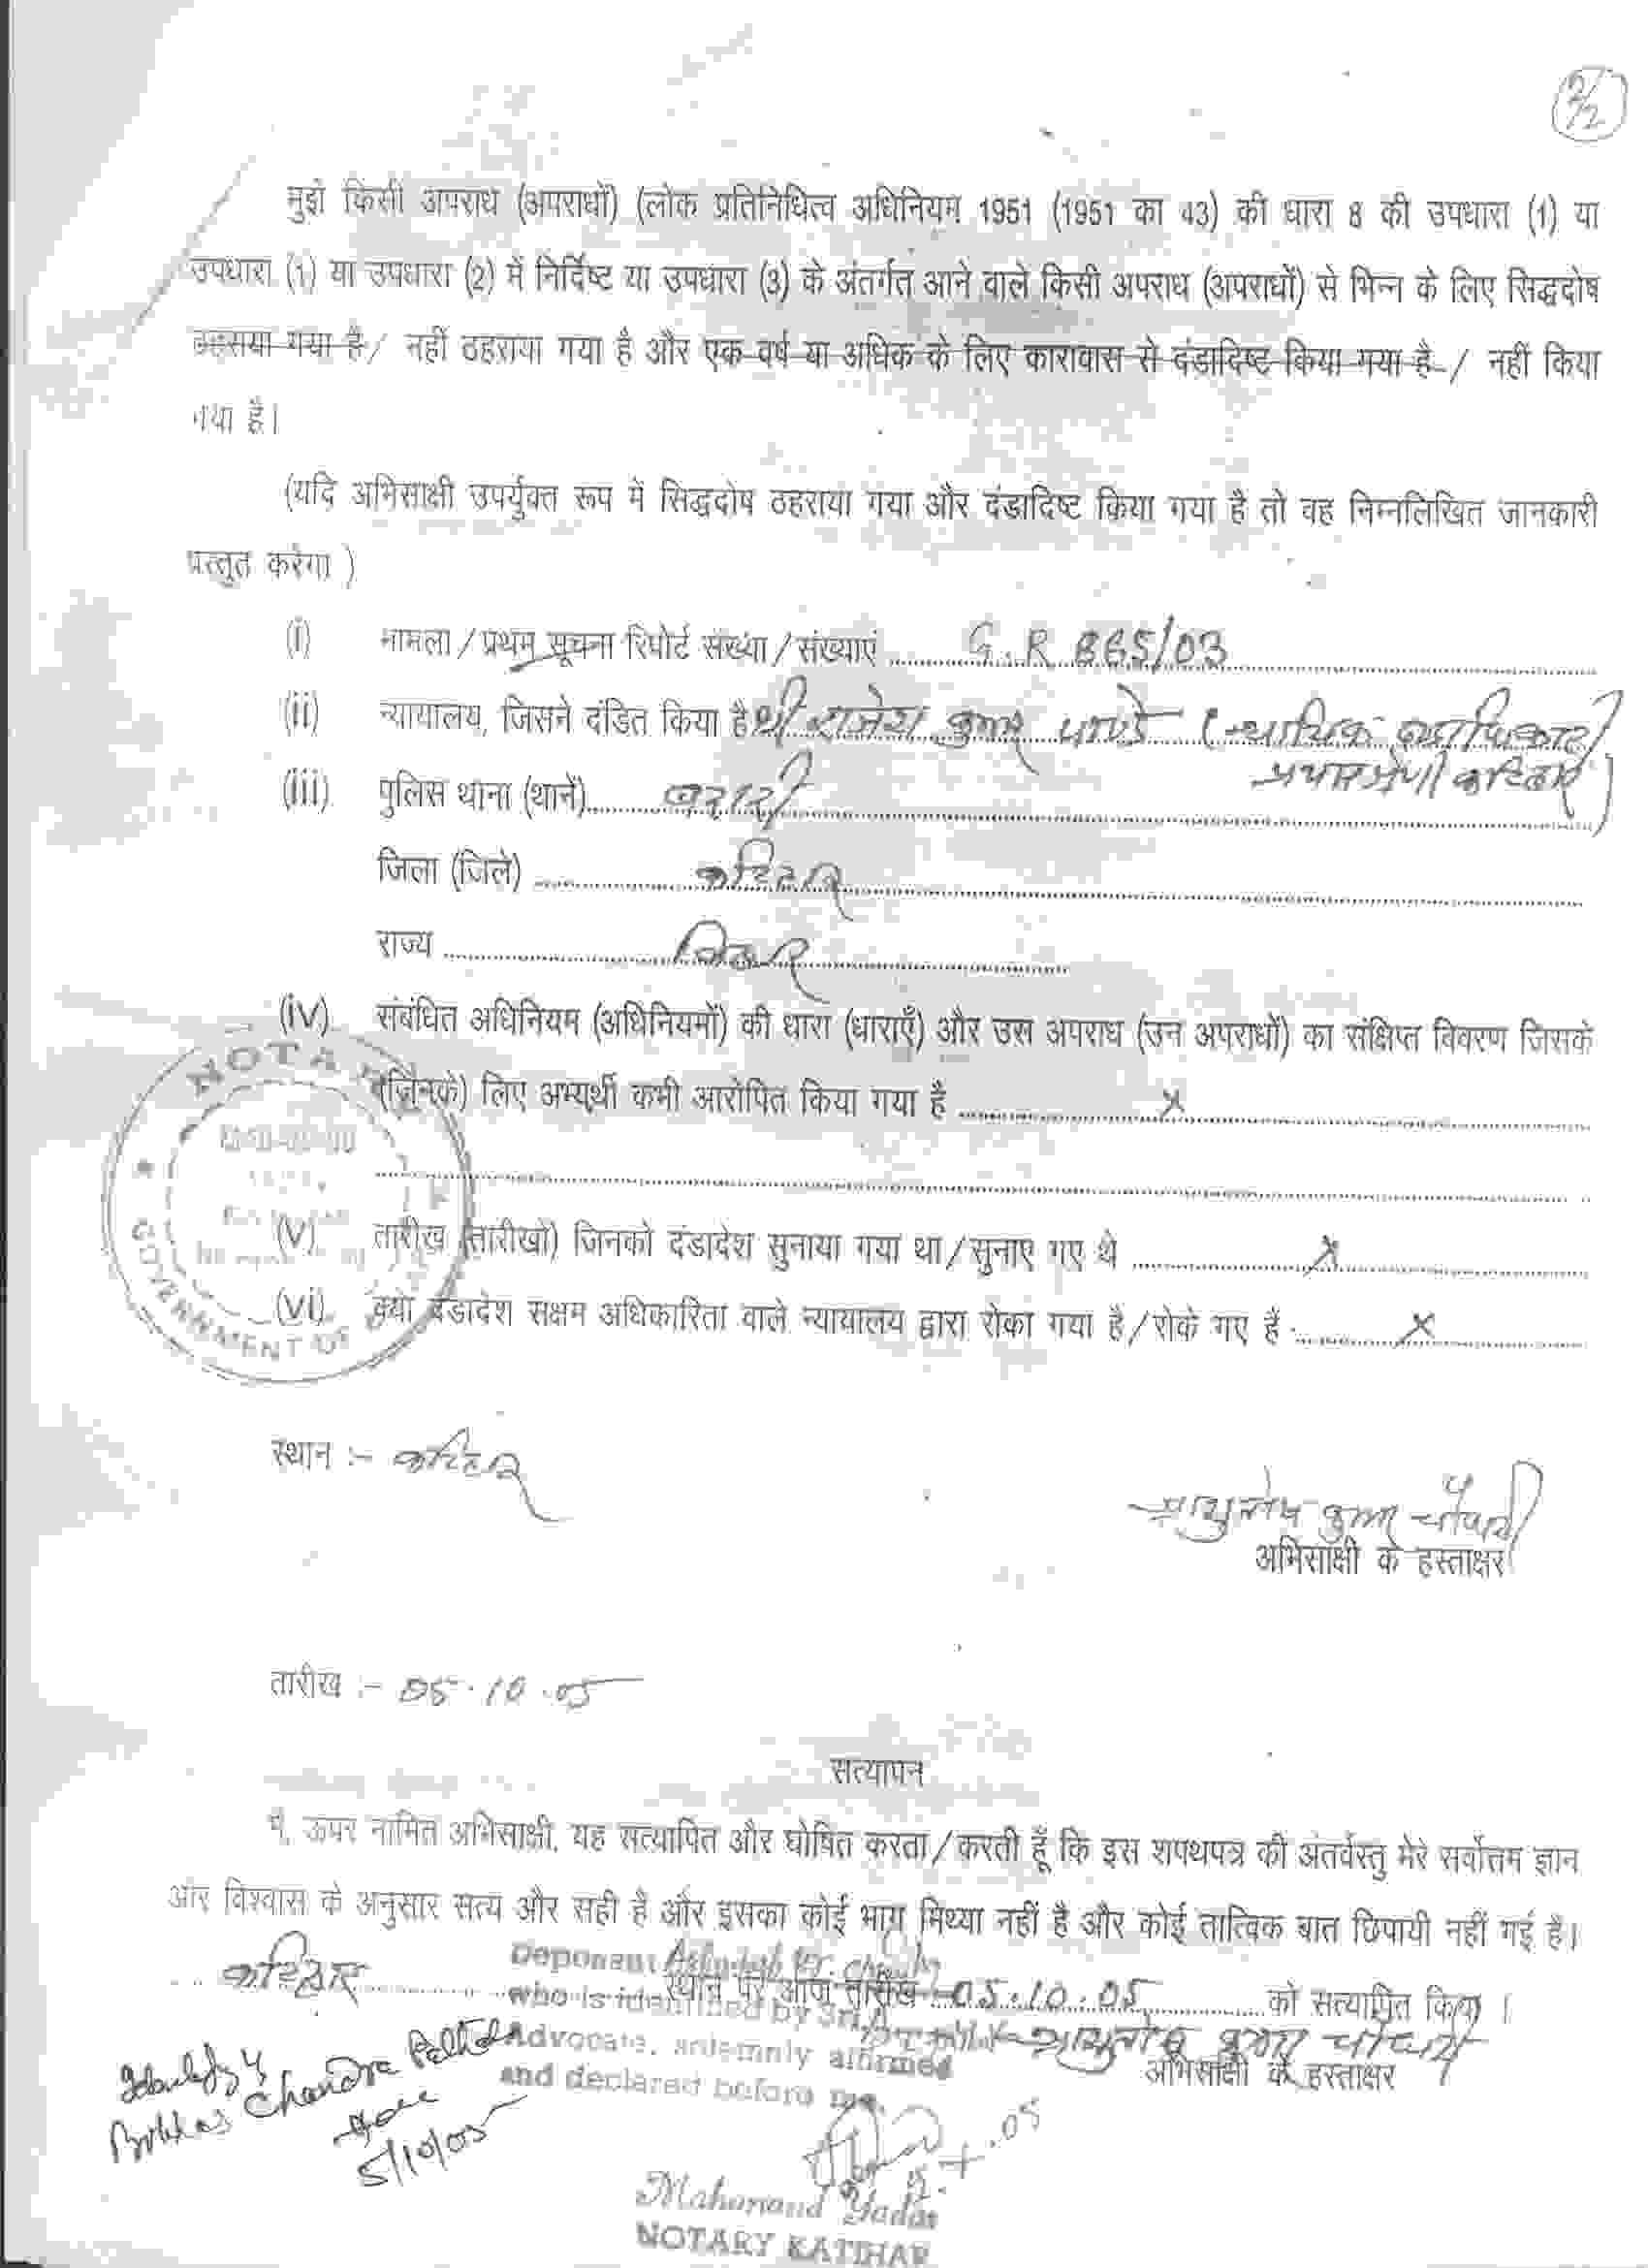 2/2
मुझे किसी अपराध (अपराधों) (लोक प्रतिनिधित्व अधिनियम 1951 (1951 का 43) की धारा 8 की उपधारा (1) या
उपधारा (1) या उपधारा (2) में निर्दिष्ट या उपधारा (3) के अंतर्गत आने वाले किसी अपराध (अपराधों) से भिन्न के लिए सिद्धदोष
ठहराया गया है / नहीं ठहराया गया है और एक वर्ष या अधिक के लिए कारावास से दंडादिष्ट किया गया है / नहीं किया
गया है।
(यदि अभिसाक्षी उपर्युक्त रूप में सिद्धदोष ठहराया गया और दंडादिष्ट किया गया है तो वह निम्नलिखित जानकारी
प्रस्तुत करेगा )
(i) मामला/प्रथम सूचना रिपोर्ट संख्या/संख्याएं G.R 865/03
(ii) न्यायालय, जिसने दंडित किया है श्री राजेश कुमार पाण्डे (न्यायिक दण्डाधिकारी
प्रथम श्रेणी कटिहार)
(iii) पुलिस थाना (थानें) बरारी
जिला (जिले) कटिहार
राज्य बिहार
(iv) संबंधित अधिनियम (अधिनियमों) की धारा (धाराएँ) और उस अपराध (उन अपराधों) का संक्षिप्त विवरण जिसके
(जिनके) लिए अभ्यर्थी कभी आरोपित किया गया है x
(v) तारीख (तारीखों) जिनको दंडादेश सुनाया गया था/सुनाए गए थे x
(vi) क्या दंडादेश सक्षम अधिकारिता वाले न्यायालय द्वारा रोका गया है/रोके गए हैं x
NOTA
GOVERNMENT OF
स्थान :- कटिहार
आशुतोष कुमार चौधरी
अभिसाक्षी के हस्ताक्षर
तारीख :- 05.10.05
सत्यापन
मैं, ऊपर नामित अभिसाक्षी, यह सत्यापित और घोषित करता/करती हूँ कि इस शपथपत्र की अंतर्वस्तु मेरे सर्वोत्तम ज्ञान
और विश्वास के अनुसार सत्य और सही है और इसका कोई भाग मिथ्या नहीं है और कोई तात्विक बात छिपायी नहीं गई है।
कटिहार स्थान पर आज तारीख 05.10.05 को सत्यापित किया।
आशुतोष कुमार चौधरी
अभिसाक्षी के हस्ताक्षर
Deponent
who is identified by Sri
Advocate, solemnly affirmed
and declared before me.
Chandra
5/10/05
Mahanand Yadav
NOTARY KATIHAR